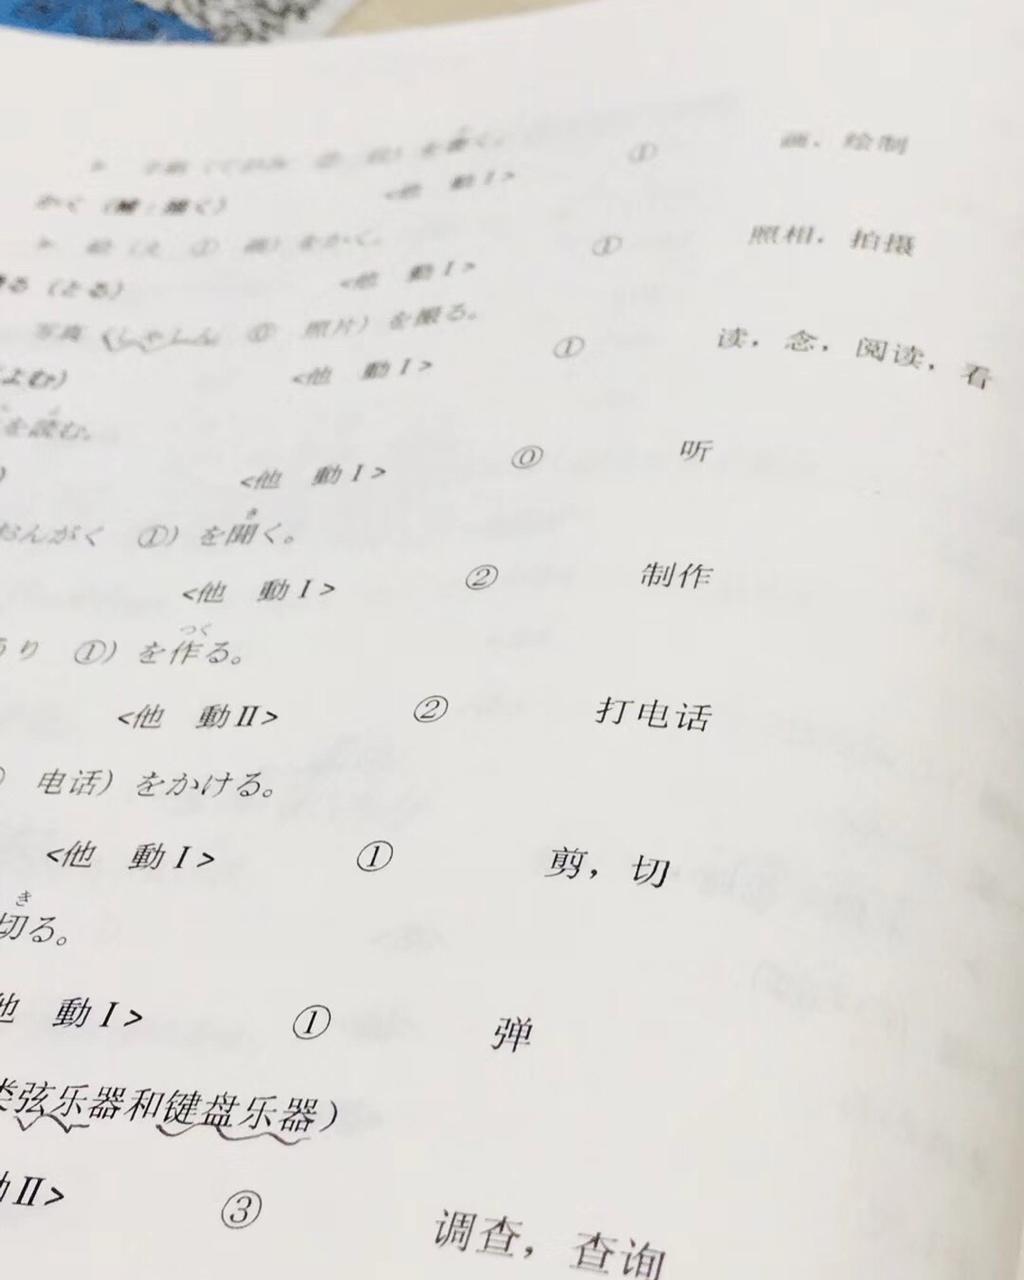 を書く。
画，绘制
かく（書・描く） <他 動Ⅰ> ①
をかく。
照相，拍摄
る（とる） <他 動Ⅰ> ①
写真（しゃしん ⓪ 照片）を撮る。
读，念，阅读，看
よむ） <他 動Ⅰ> ①
を読む。
听
） <他 動Ⅰ> ⓪
おんがく ①）を聞く。
き
<他 動Ⅰ> ② 制作
うり ①）を作る。
つく
<他 動Ⅱ> ② 打电话
电话）をかける。
<他 動Ⅰ> ① 剪，切
切る。
き
他 動Ⅰ> ① 弹
类弦乐器和键盘乐器）
動Ⅱ> ③ 调查，查询